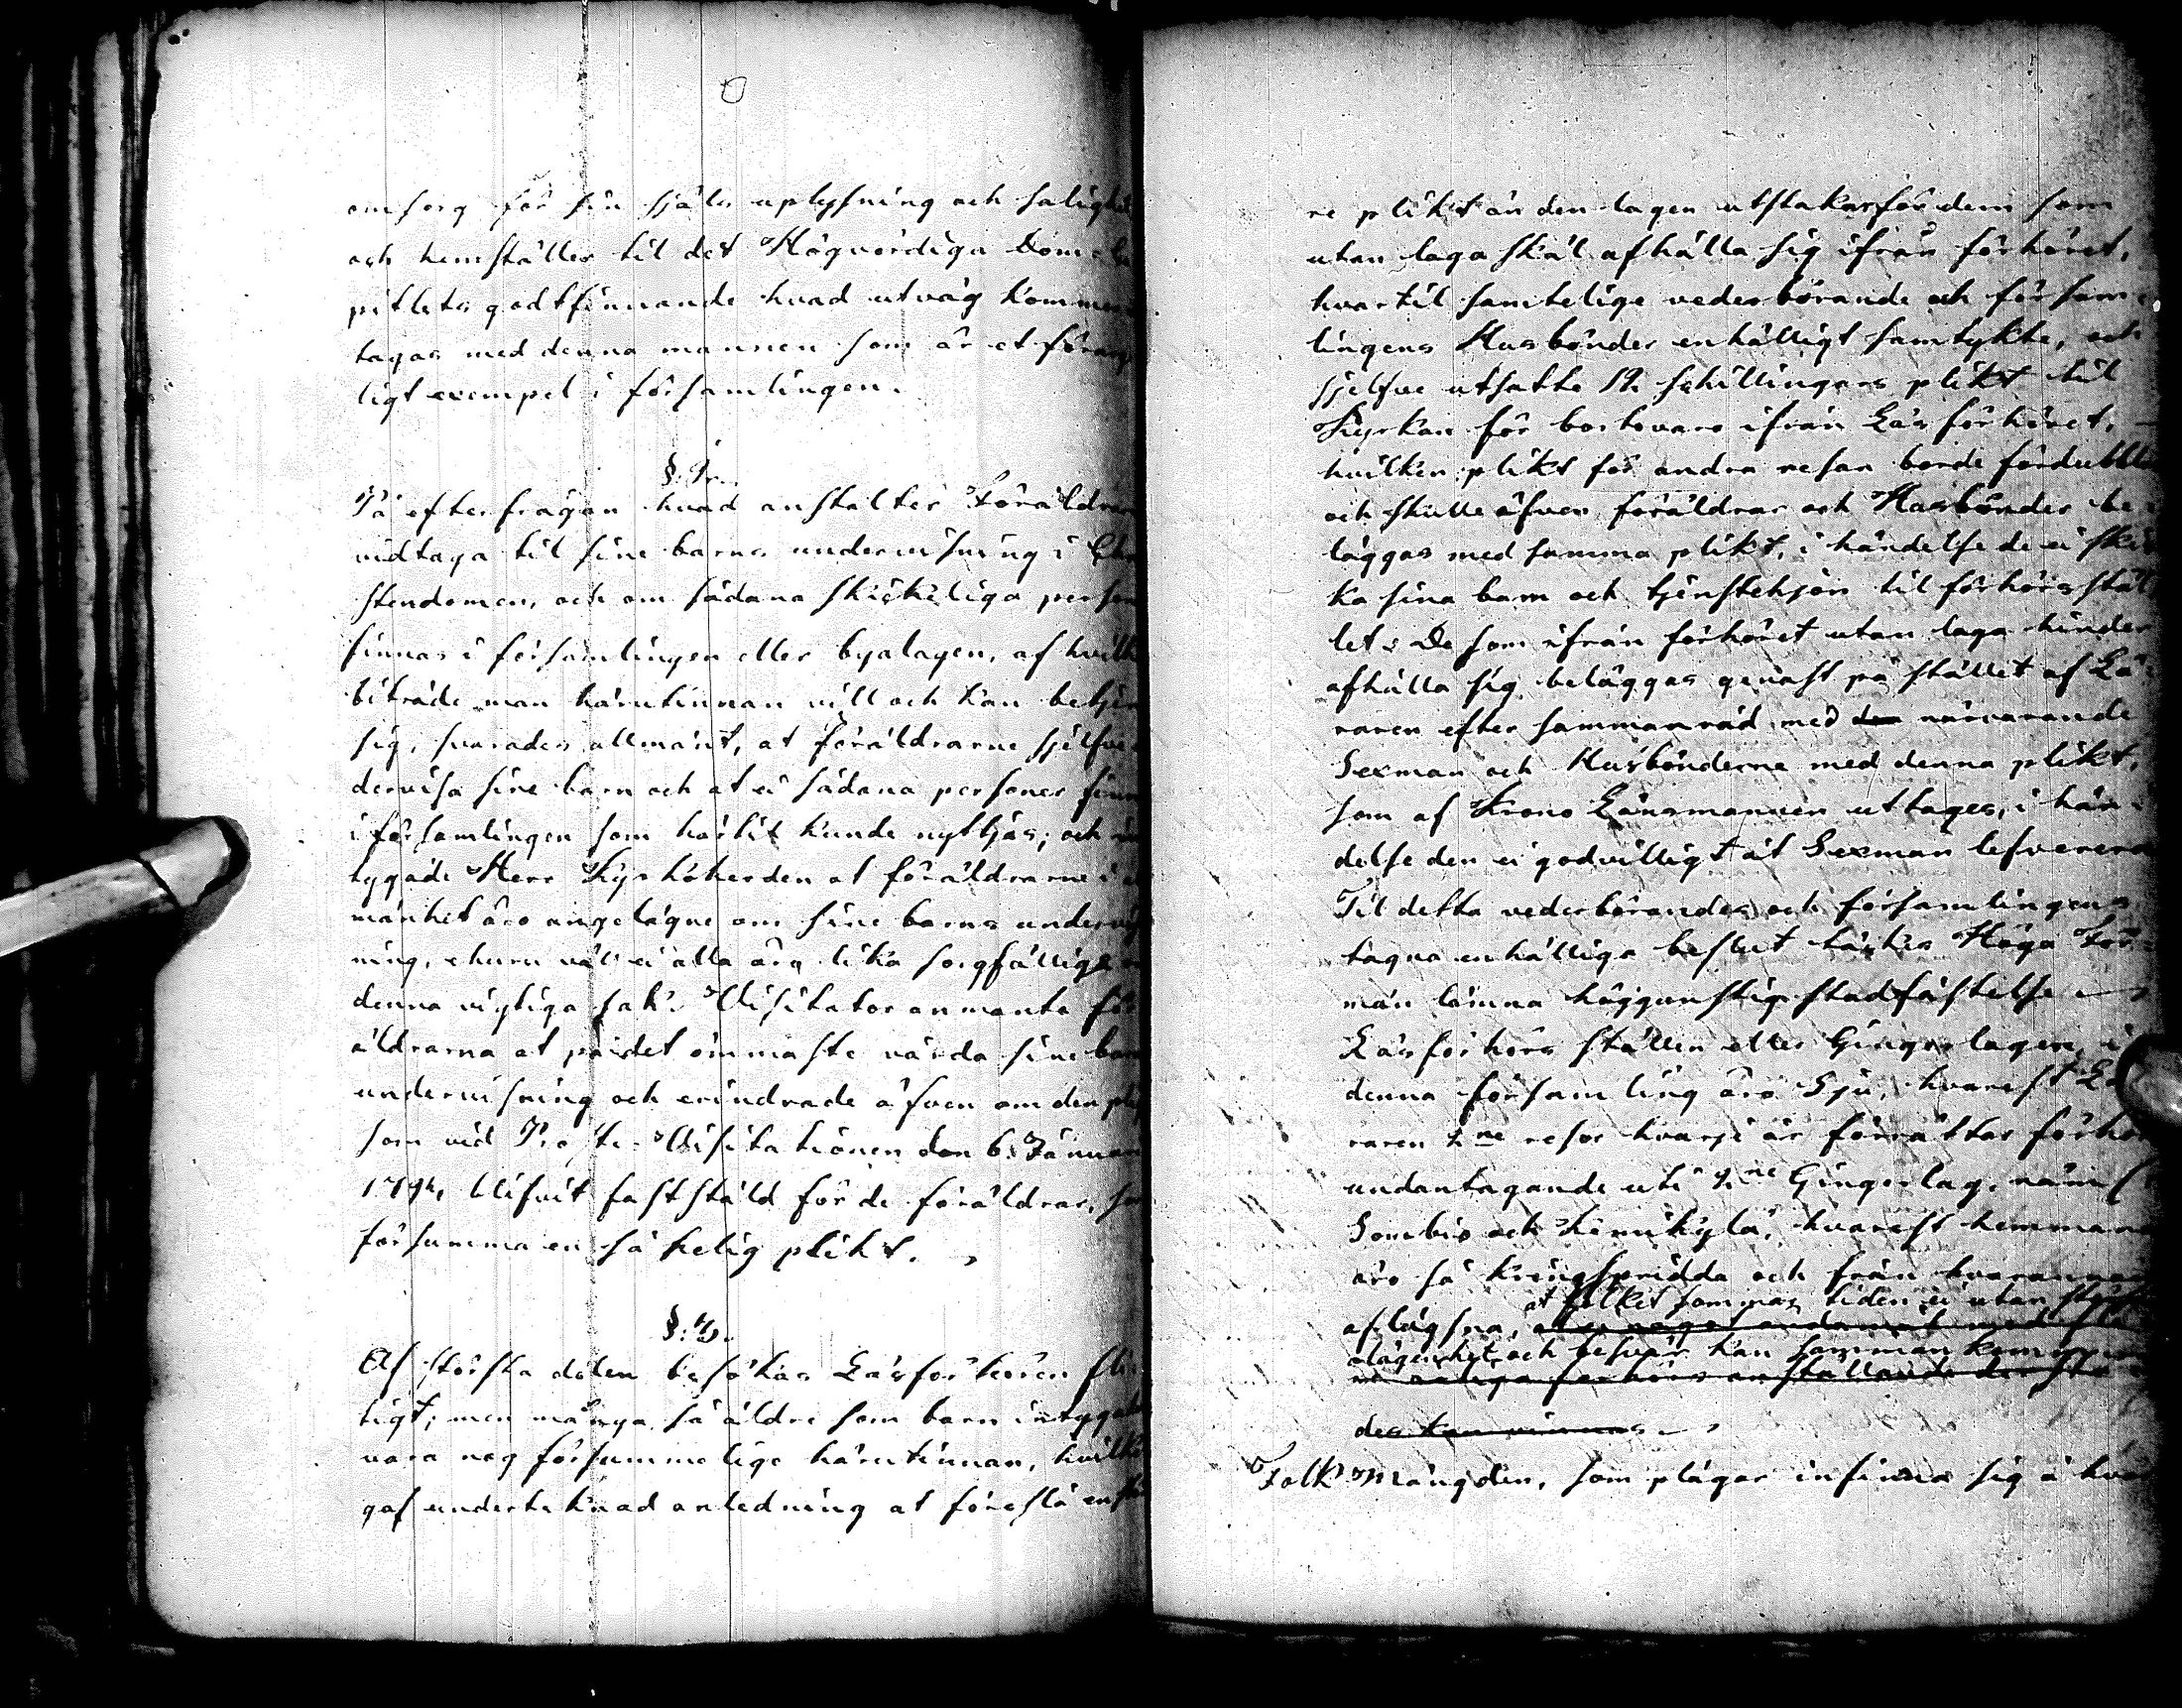 omsorg för sin själs uplysning och salighet
och hemställes til det Högvördiga Domca
pitlets godtfinnande hvad utväg kommer
tagas med denna mannen som är et förarge
ligt exempel i församlingen.
§. 
På efterfrågan hvad anstalter Föräldrar
vidtaga til sine barns undervisning i Chri
stendomen, och om sådana skickeliga person
finnas i församlingen eller byalagen, af hvilk
biträde man härutinnan vill och kan betjen
sig, svarades allmänt, at föräldrarne sjelfve
dervisa sine barn och at ei sådana personer finn
i församlingen som härtil kunde nyttjas; och
tygade Herr Kyrkoherden at föräldrarne i
mänhet äro angelägne om sine barns undervis
ning, ehuru väl ei alla äro lika sorgfällige
denna vigtiga sak. Visitator anmante för
äldrarna at på det ömmaste vårda sine barn
undervisning och erindrade äfven om den plig
som vid Prosts-Visitationen den 6. Januari
179 blifvit fastställd för de föräldrar, som
försumma en så helig plikt.
§. 
Af största delen besökas Läsförhören fli
tigt; men många så äldre som barn intygades
vara nog försummelige härutinnan, hvilke
gaf undertecknad anledning at föreslå en stö
re plikt än den lagen utstakar för dem som
utan laga skäl afhålla sig ifrån förhöret,
hvartil samtelige vederbörande och försam
lingens Husbönder enhälligt samtykte, och
sjelfve utsatte 12 schillingars plikt til
Kyrkan för bortovaro ifrån Läsförhöret,
hvilken plikt för andra resan borde fördubbla
och skulle äfven föräldrar och Husbönder be
läggas med samma plikt, i händelse de ei skic
ka sina barn och tjenstehjon til förhörsstäl
let. De som ifrån förhöret utan laga hinder
afhålla sig beläggas genast på stället af Lä
raren efter sammanråd med den närvarande
Sexman och Husbönderne med denna plikt,
som af Krono Länsmannen uttages, i hän
delse den ei godvilligt åt Sexman lefverera
Til detta vederbörandes och församlingens
tagna enhälliga beslut täckes Höga För
män lämna höggunstig stadfästelse
Läsförhörs ställen eller Gingerlagen i
denna församling äro Sju, hvarest Lä
raren 2ne resor hvarje år förrättar förhör
undantagande uti 2ne Gingerlag, näml
och hvarest hemmane
äro så kringspridda och från hvarannan
at folket sommar tiden ei utan stör
aflägsna,
olägenhet och besvär kan samman komma
förhörs anställande
des kan vinnas
Folk Mängden, som plägar infinna sig å hvar